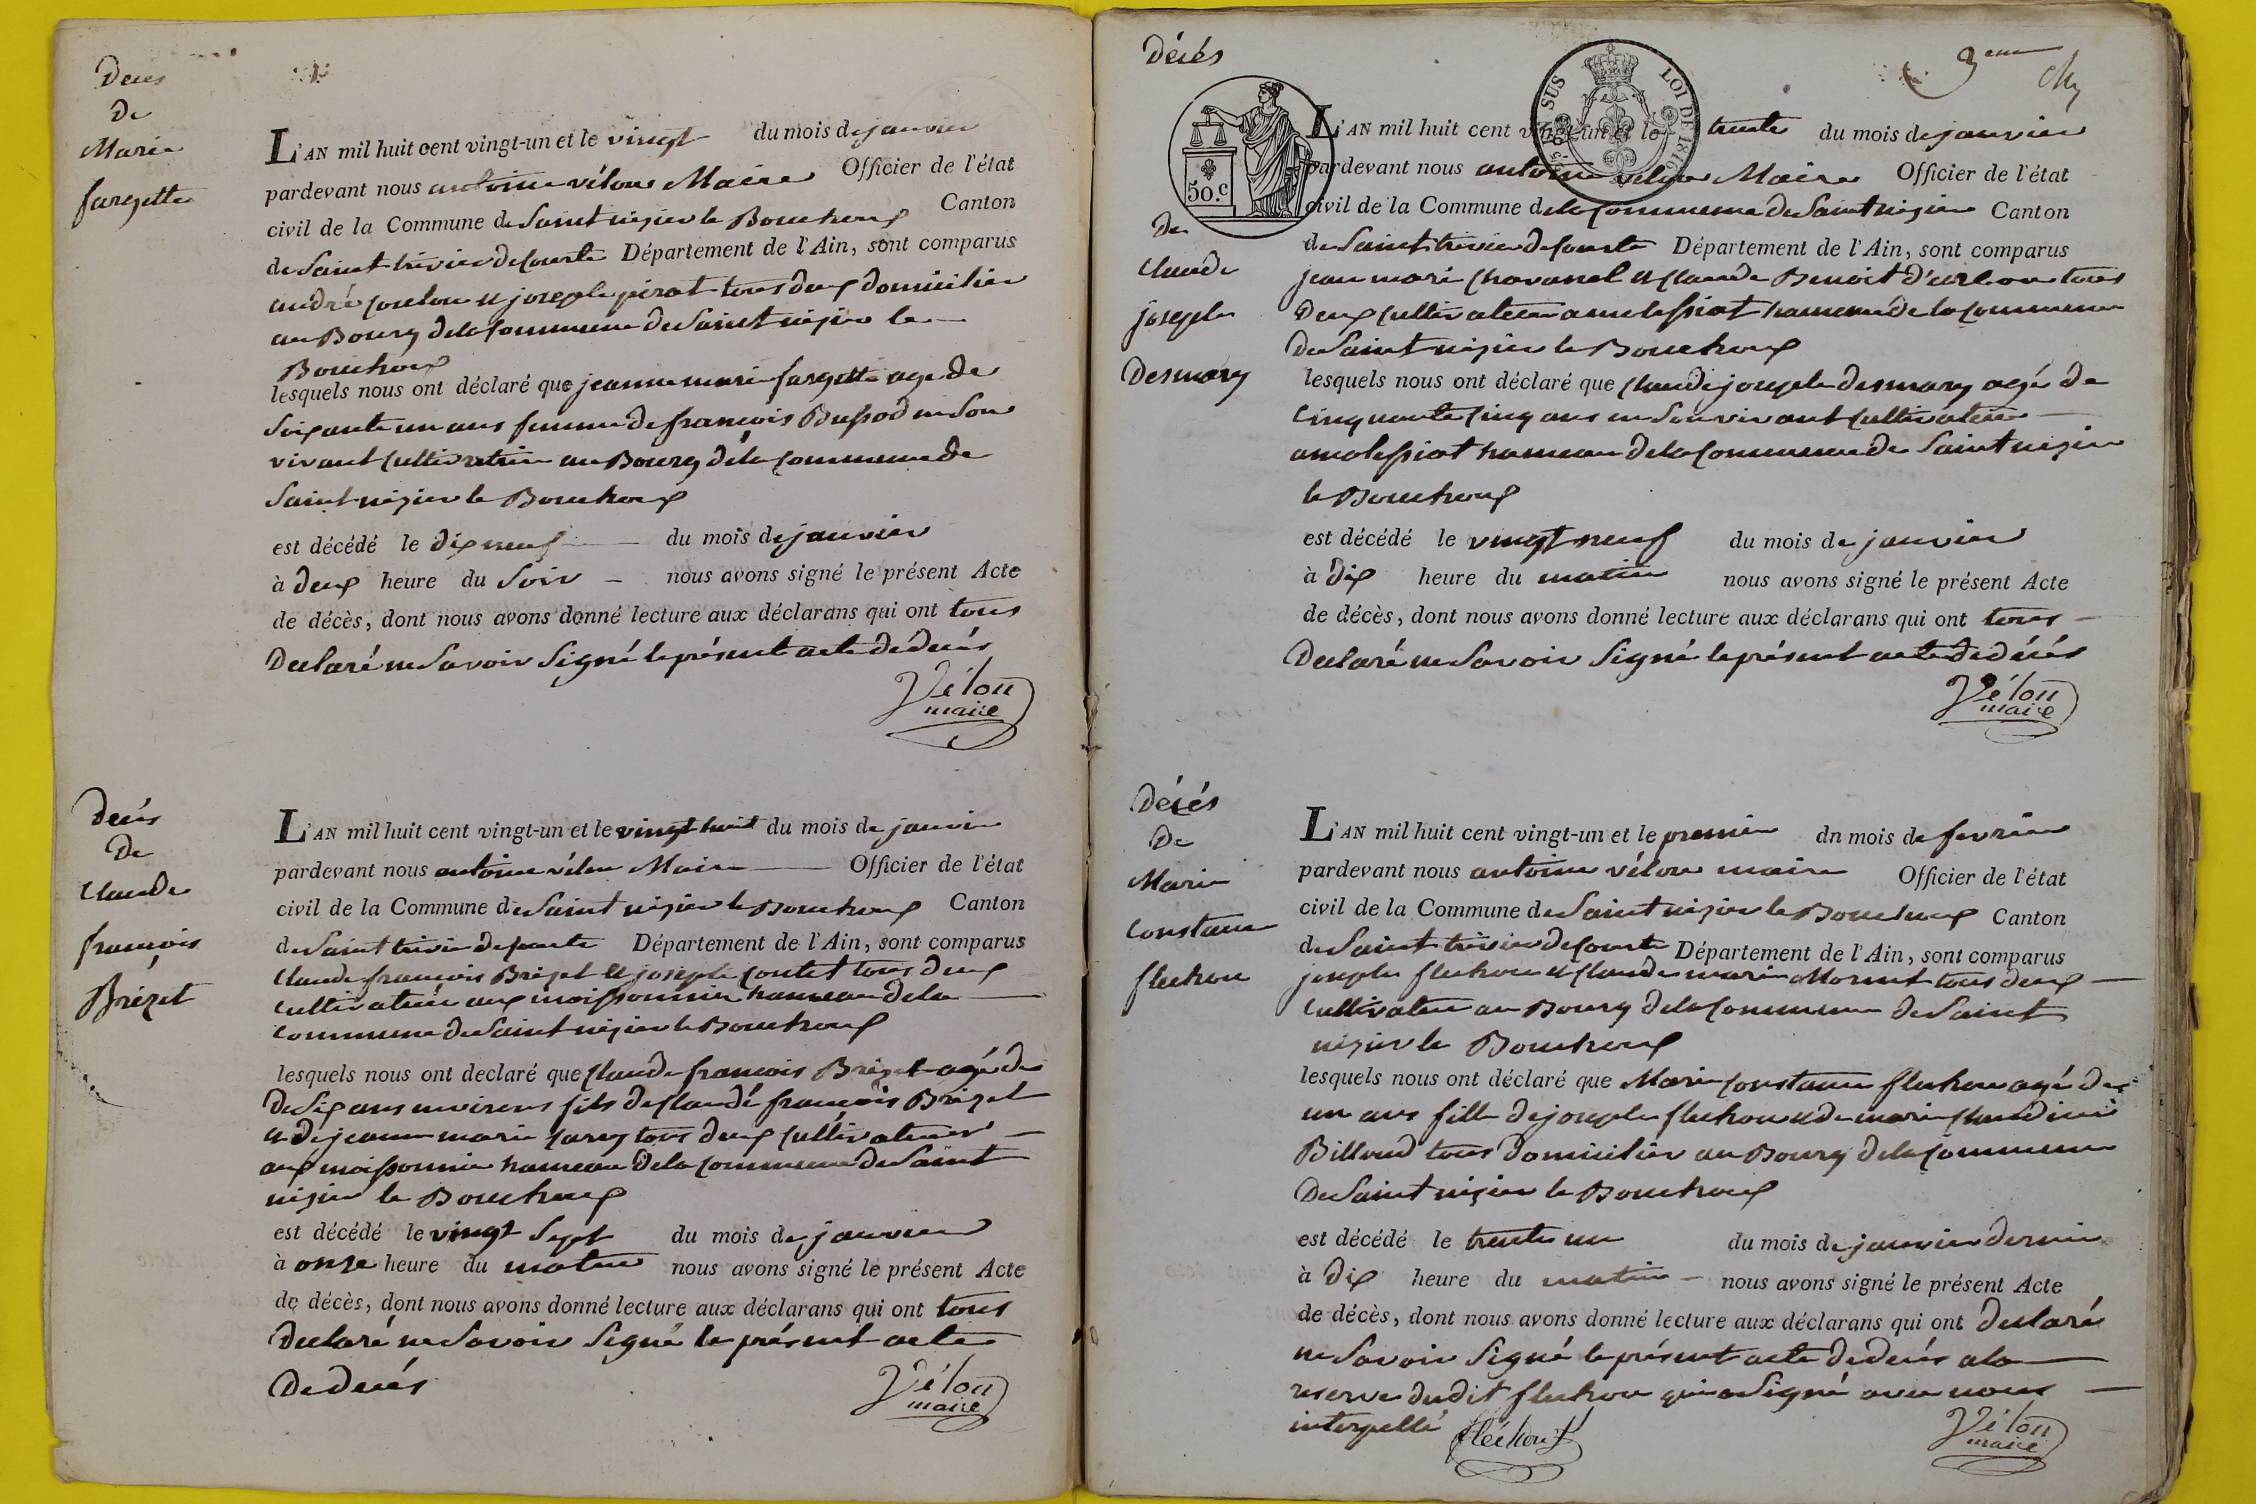 Deces
De
Marie
fargette
L'AN mil huit cent vingt-un et le vingt du mois de janvier
pardevant nous antoine vélon Maire Officier de l'état
civil de la Commune de Saint nizier le Bouchoux Canton
de Saint trivier de Courte Département de l'Ain, sont comparus
andré coulon et joseph pirat tous deux domicilier
au Bourg de la Commune de Saint nizier le
Bouchoux
lesquels nous ont déclaré que jeanne marie fargette age de
Soixante un ans femme de francois Bussod en Son
vivant Cultivatrice au Bourg de la Commune de
Saint nizier le Bouchoux
est décédé le dix neuf du mois de janvier
à deux heure du Soir nous avons signé le présent Acte
de décès, dont nous avons donné lecture aux déclarans qui ont tous
Déclaré ne Savoir Signé le présent acte de décés
Vélon
maire
Decés
De
Claude
françois
Brézet
L'AN mil huit cent vingt-un et le vingt huit du mois de janvier
pardevant nous antoine vélon Maire Officier de l'état
civil de la Commune de Saint nizier le Bouchoux Canton
de Saint trivier de Courte Département de l'Ain, sont comparus
Claude françois Brézet et joseph Contet tous deux
Cultivateur aux moissonnier hameau de la
Commune de Saint nizier le Bouchoux
lesquels nous ont declaré que Claude francois Brézet agé de
De Six ans environs fils de Claude françois Brézet
et de jeanne marie tous deux Cultivateur
aux moissonnier hameau de la Commune de Saint
nizier le Bouchoux
est décédé le vingt Sept du mois de janvier
à onze heure du matin nous avons signé le présent Acte
de décès, dont nous avons donné lecture aux déclarans qui ont tous
Declaré ne Savoir Signé le présent acte
De decés
Vélon
maire
Décés
3eme
50.c
EN SUS
LOI DE 1816
De
Claude
joseph
Desmary
L'AN mil huit cent vingt-un et le trente du mois de janvier
pardevant nous antoine vélon Maire Officier de l'état
civil de la Commune de la Commune de Saint nizier Canton
de Saint trivier de Courte Département de l'Ain, sont comparus
jean marie Chavanel et Claude Benoit d'arbon tous
Deux Cultivateur a hameau de la Commune
De Saint nizier le Bouchoux
lesquels nous ont déclaré que Claude joseph desmary agé de
Cinquante Cinq ans en Son vivant Cultivateur
hameau de la Commune de Saint nizier
le Bouchoux
est décédé le vingt neuf du mois de janvier
à dix heure du matin nous avons signé le présent Acte
de décès, dont nous avons donné lecture aux déclarans qui ont tous
Declaré ne Savoir Signé le présent acte de décés
Vélon
maire
Décés
De
Marie
Constance
flechon
L'AN mil huit cent vingt-un et le premier dn mois de fevrier
pardevant nous antoine vélon maire Officier de l'état
civil de la Commune de Saint nizier le Bouchoux Canton
de Saint trivier de Courte Département de l'Ain, sont comparus
joseph flechon et Claude marie Morent tous deux
Cultivateur au Bourg de la Commune de Saint
nizier le Bouchoux
lesquels nous ont déclaré que Marie Constance flechon agé de
un ans fille de joseph flechon et de marie Claudine
Billoud tous Domicilier au Bourg de la Commune
De Saint nizier le Bouchoux
est décédé le trente un du mois de janvier dernier
à dix heure du matin nous avons signé le présent Acte
de décès, dont nous avons donné lecture aux déclarans qui ont déclaré
ne Savoir Signé le présent acte de decés a la
reserve dudit flechon qui a Signé avec nous
interpellé fléchon
Vélon
maire